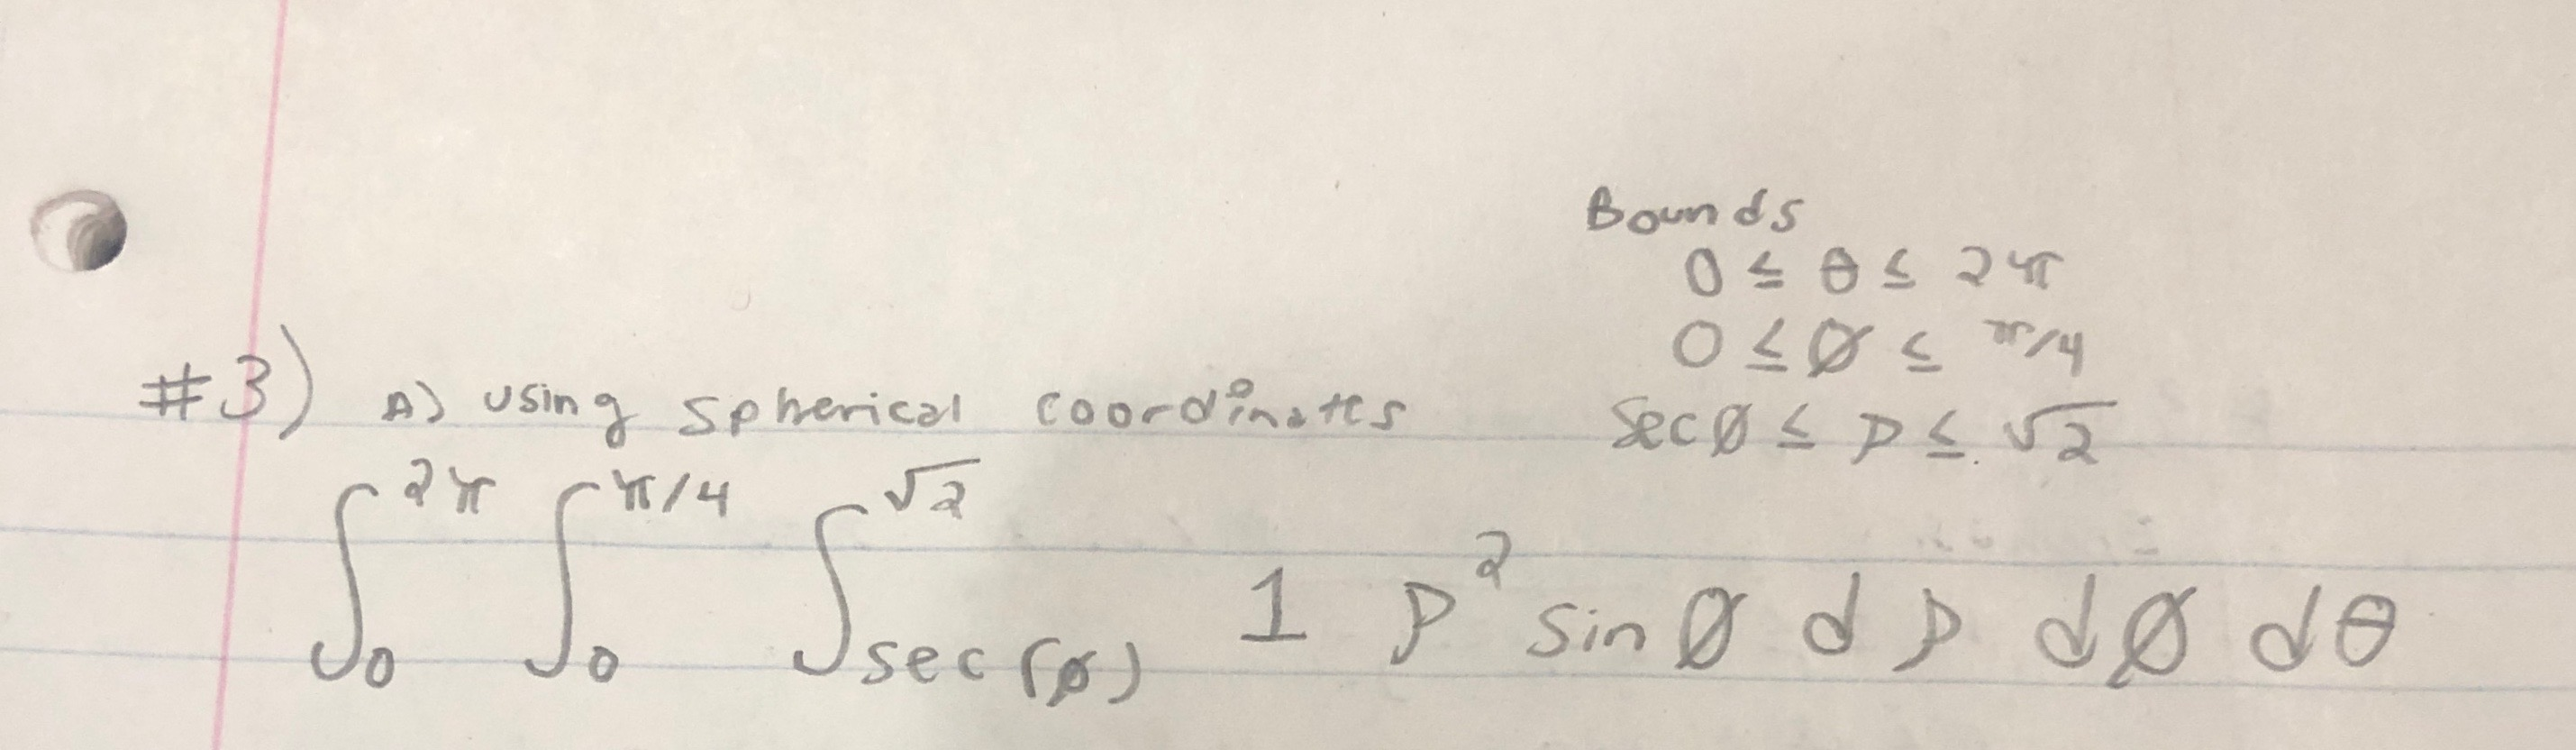 Bounds
0 ≤ θ ≤ 2π
0 ≤ Ø ≤ π/4
Sec Ø ≤ ρ ≤ √2
#3) A) using spherical coordinates
∫₀^2π ∫₀^π/4 ∫_sec(ø)^√2 1 ρ² sin Ø d ρ d Ø d θ